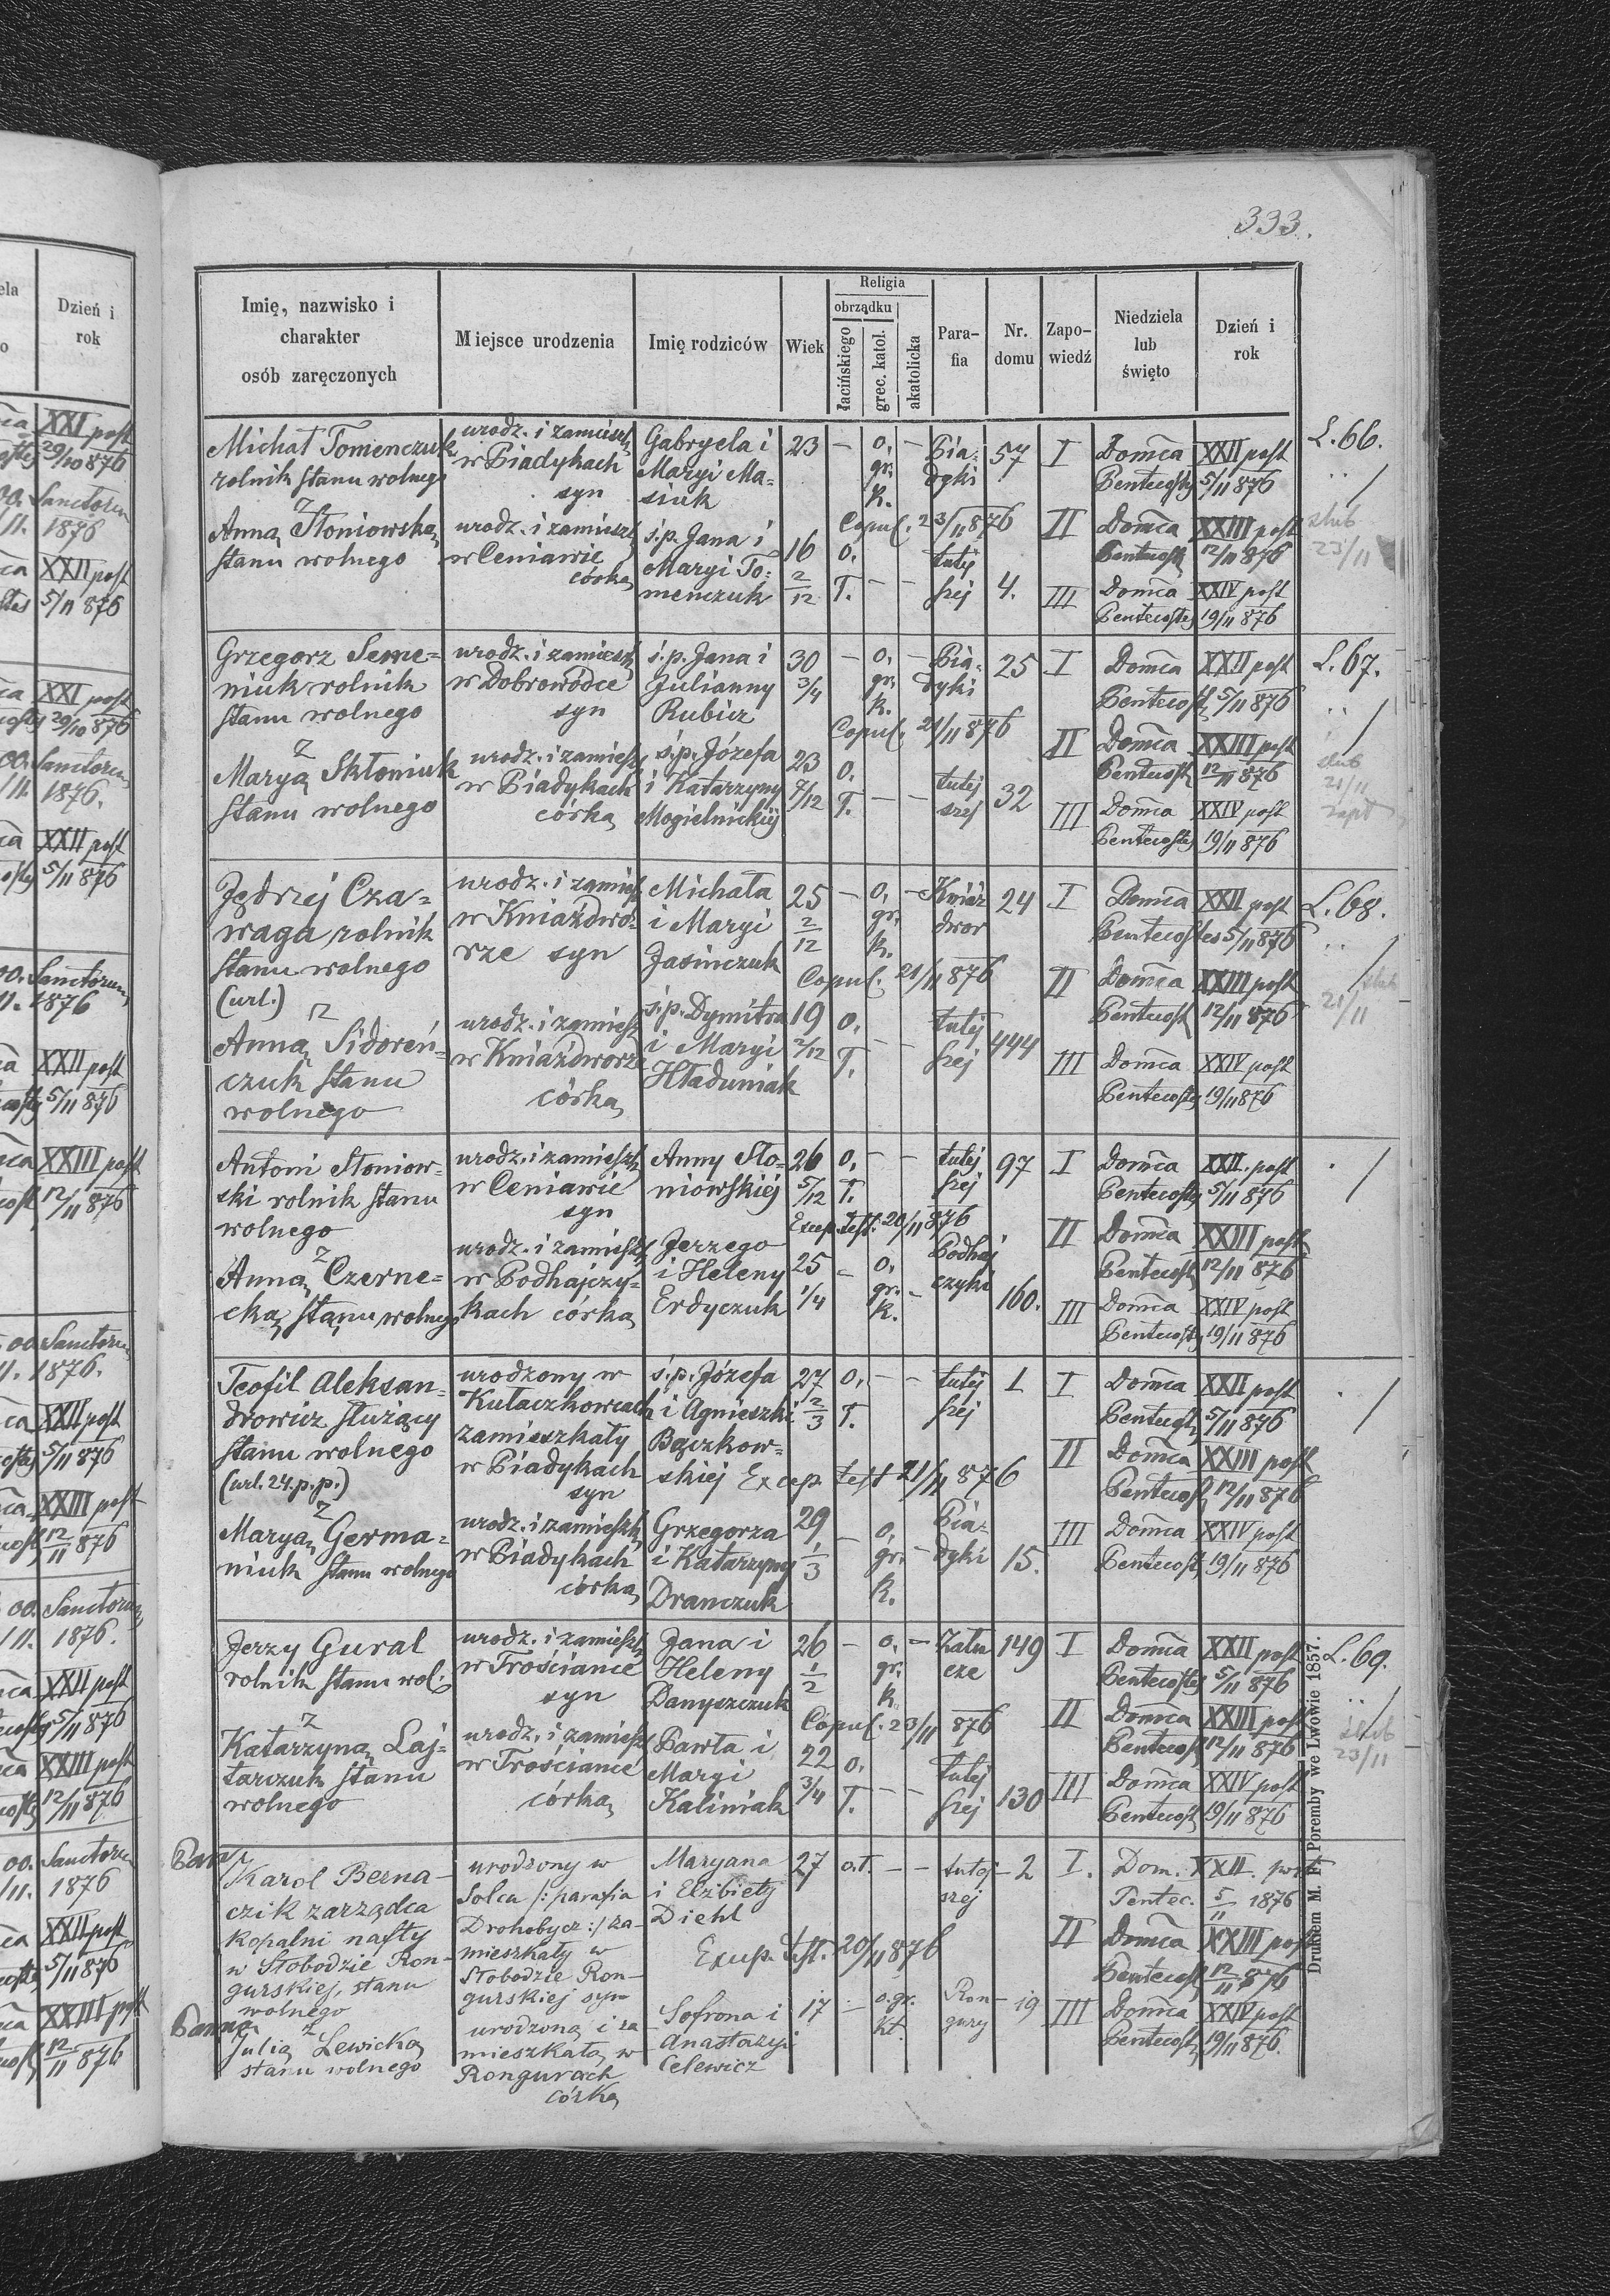 333.
Religia
obrządku
Imię, nazwisko i
charakter
osób zaręczonych
Miejsce urodzenia
Imię rodziców
Wiek
łacińskiego
grec. katol.
akatolicka
Para-
fia
Nr.
domu
Zapo-
wiedź
Niedziela
lub
święto
Dzień i
rok
Michał Tomenczuk
rolnik stanu wolnego
z
Anną Słoniowską
stanu wolnego
urodz. i zamieszk
w Piadykach
syn
urodz. i zamieszk
w Ceniawie
córką
Gabryela i
Maryi Ma=
siuk
ś.p. Jana i
Maryi To=
menczuk
23 — o. gr. k. — Pia-
dyki 57
Copul. 23/11 876
16 2/12 o. Ł. — — tutej
szej 4.
I Domca XXII post
Pentecostes 5/11 876
II Domca XXIII post
Pentecost 12/11 876
III Domca XXIV post
Pentecostes 19/11 876
L. 66.
ślub
23/11
Grzegorz Seme=
niuk rolnik
stanu wolnego
z
Maryą Skłoniuk
stanu wolnego
urodz. i zamieszk
w Dobrowódce
syn
urodz. i zamieszk
w Piadykach
córką
ś.p. Jana i
Julianny
Rubicz
ś.p. Józefa
i Katarzyny
Mogielnickiej
30 3/4 — o. gr. k. — Pia-
dyki 25
Copul. 21/11 876
23 7/12 o. Ł. — — tutej
szej 32
I Domca XXII post
Pentecost 5/11 876
II Domca XXIII post
Pentecost 12/11 876
III Domca XXIV post
Pentecostes 19/11 876
L. 67.
ślub
21/11
zapł
Jędrzej Cza=
waga rolnik
stanu wolnego
(url.)
z
Anną Sidoreń=
czuk stanu
wolnego
urodz. i zamiesz
w Kniaźdwo=
rze syn
urodz. i zamiesz
w Kniaźdworze
córką
Michała
i Maryi
Jasinczuk
ś.p. Dymitra
i Maryi
Hładuniak
25 2/12 — o. gr. k. — Kniaź
dwor 24
Copul. 21/11 876
19 2/12 o. Ł. — — tutej
szej 444
I Domca XXII post
Pentecostes 5/11 876
II Domca XXIII post
Pentecost 12/11 876
III Domca XXIV post
Pentecostes 19/11 876
L. 68.
ślub
21/11
Antoni Słoniow-
ski rolnik stanu
wolnego
z
Anną Czerne=
cką stanu wolnego
urodz. i zamieszk
w Ceniawie
syn
urodz. i zamieszk
w Podhajczy=
kach córką
Anny Sło=
niowskiej
Jerzego
i Heleny
Erdyczuk
26 5/12 o. Ł. — — tutej
szej 97
Excep. test. 20/11 876
25 1/4 — o. gr. k. — Podhaj
czyki 160.
I Domca XXII. post
Pentecostes 5/11 876
II Domca XXIII post
Pentecost 12/11 876
III Domca XXIV post
Pentecostes 19/11 876
Teofil Aleksan=
drowicz służący
stanu wolnego
(url. 24. p.p.)
z
Maryą Germa=
niuk stanu wolnego
urodzony w
Kułaczkowcach
zamieszkały
w Piadykach
syn
urodz. i zamieszk
w Piadykach
córką
ś.p. Józefa
i Agnieszki
Bączkow=
skiej
Grzegorza
i Katarzyny
Dranczuk
27 2/3 o. Ł. — — tutej
szej 1
Excep. test 21/11 876
29 1/3 — o. gr. k. — Pia-
dyki 15.
I Domca XXII post
Pentecost 5/11 876
II Domca XXIII post
Pentecost 12/11 876
III Domca XXIV post
Pentecost 19/11 876
Jerzy Gural
rolnik stanu wol:
z
Katarzyną Laj=
tarczuk stanu
wolnego
urodz. i zamieszk
w Trościance
syn
urodz. i zamieszk
w Trościance
córką
Jana i
Heleny
Danyszczuk
Pawła i
Maryi
Kaliniak
26 1/2 — o. gr. k. — Zału
cze 149
Copul. 23/11 876
22 3/4 o. Ł. — — tutej
szej 130
I Domca XXII post
Pentecostes 5/11 876
II Domca XXIII post
Pentecost 12/11 876
III Domca XXIV post
Pentecost 19/11 876
L. 69.
ślub
23/11
Pan
Karol Berna-
czik zarządca
kopalni nafty
w Słobodzie Ron-
gurskiej, stanu
wolnego
z
Panna
Julią Lewicką
stanu wolnego
urodzony w
Solcu /: parafia
Drohobycz :/ za-
mieszkały w
Słobodzie Ron-
gurskiej syn
urodzoną i za
mieszkałą w
Rongurach
córką
Maryana
i Elżbiety
Diehl
Sofrona i
Anastazyi
Celewicz
27 o.Ł. — — tutej
szej 2
Excep. test. 20/11 876
17 — o. gr.
kt. Ron-
gury 19
I. Dom. XXII. post
Pentec. 5/11 1876
II Domca XXIII post
Pentecost 12/11 876
III Domca XXIV post
Pentecost 19/11 876.
Drukiem M. F. Poremby we Lwowie 1857.
Dzień i
rok
XXI post
29/10 876
Sanctorum
1876
XXII post
5/11 876
XXI post
29/10 876
Sanctorum
1876.
XXII post
5/11 876
Sanctorum
1876
XXII post
5/11 876
XXIII post
12/11 876
Sanctorum
1876.
XXII post
5/11 876
XXIII post
12/11 876
Sanctorum
1876.
XXII post
5/11 876
XXIII post
12/11 876
Sanctorum
1876
XXII post
5/11 876
XXIII post
12/11 876